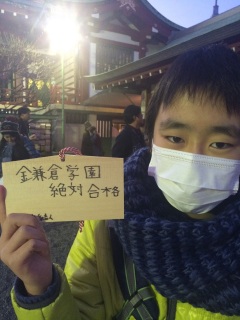 金鎌倉学園
絶対合格